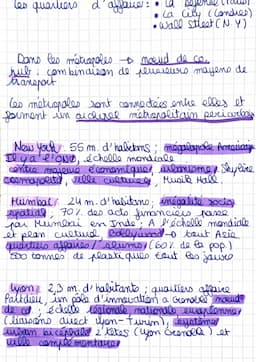 les quartiers d'affaire : • La Défense (Paris)
• La City (Londres)
• Wall Street (N Y)
Dans les métropoles → nœud de co.
hub : combinaison de plusieurs moyens de
transport
Les métropoles sont connectées entre elles et
forment un archipel métropolitain
New York : 55 m. d'habitans ; mégalopole
Il y a l'ONU, échelle mondiale
centre majeur économique, urbanisme, Skyline
cosmopolite, ville culturelle, Music Hall.
Mumbai : 24 m. d'habitans ; inégalité socio
spatiale, 70% des actes financiers passe
par Mumbai en Inde. A l'échelle mondiale
et plan culturel Bollywood → tout Asie
quartiers affaires / slums (60% de la pop.)
500 tonnes de plastiques tout les jours
Lyon : 2,3 m. d'habitants ; quartiers affaire
Partdieu, un pôle d'innovation à Grenoble nœud
de co ; échelle régionale nationale européenne
(liaisons direct Lyon-Turin), système
urbain bicéphale 2 têtes (Lyon Grenoble) et
ville complémentaires